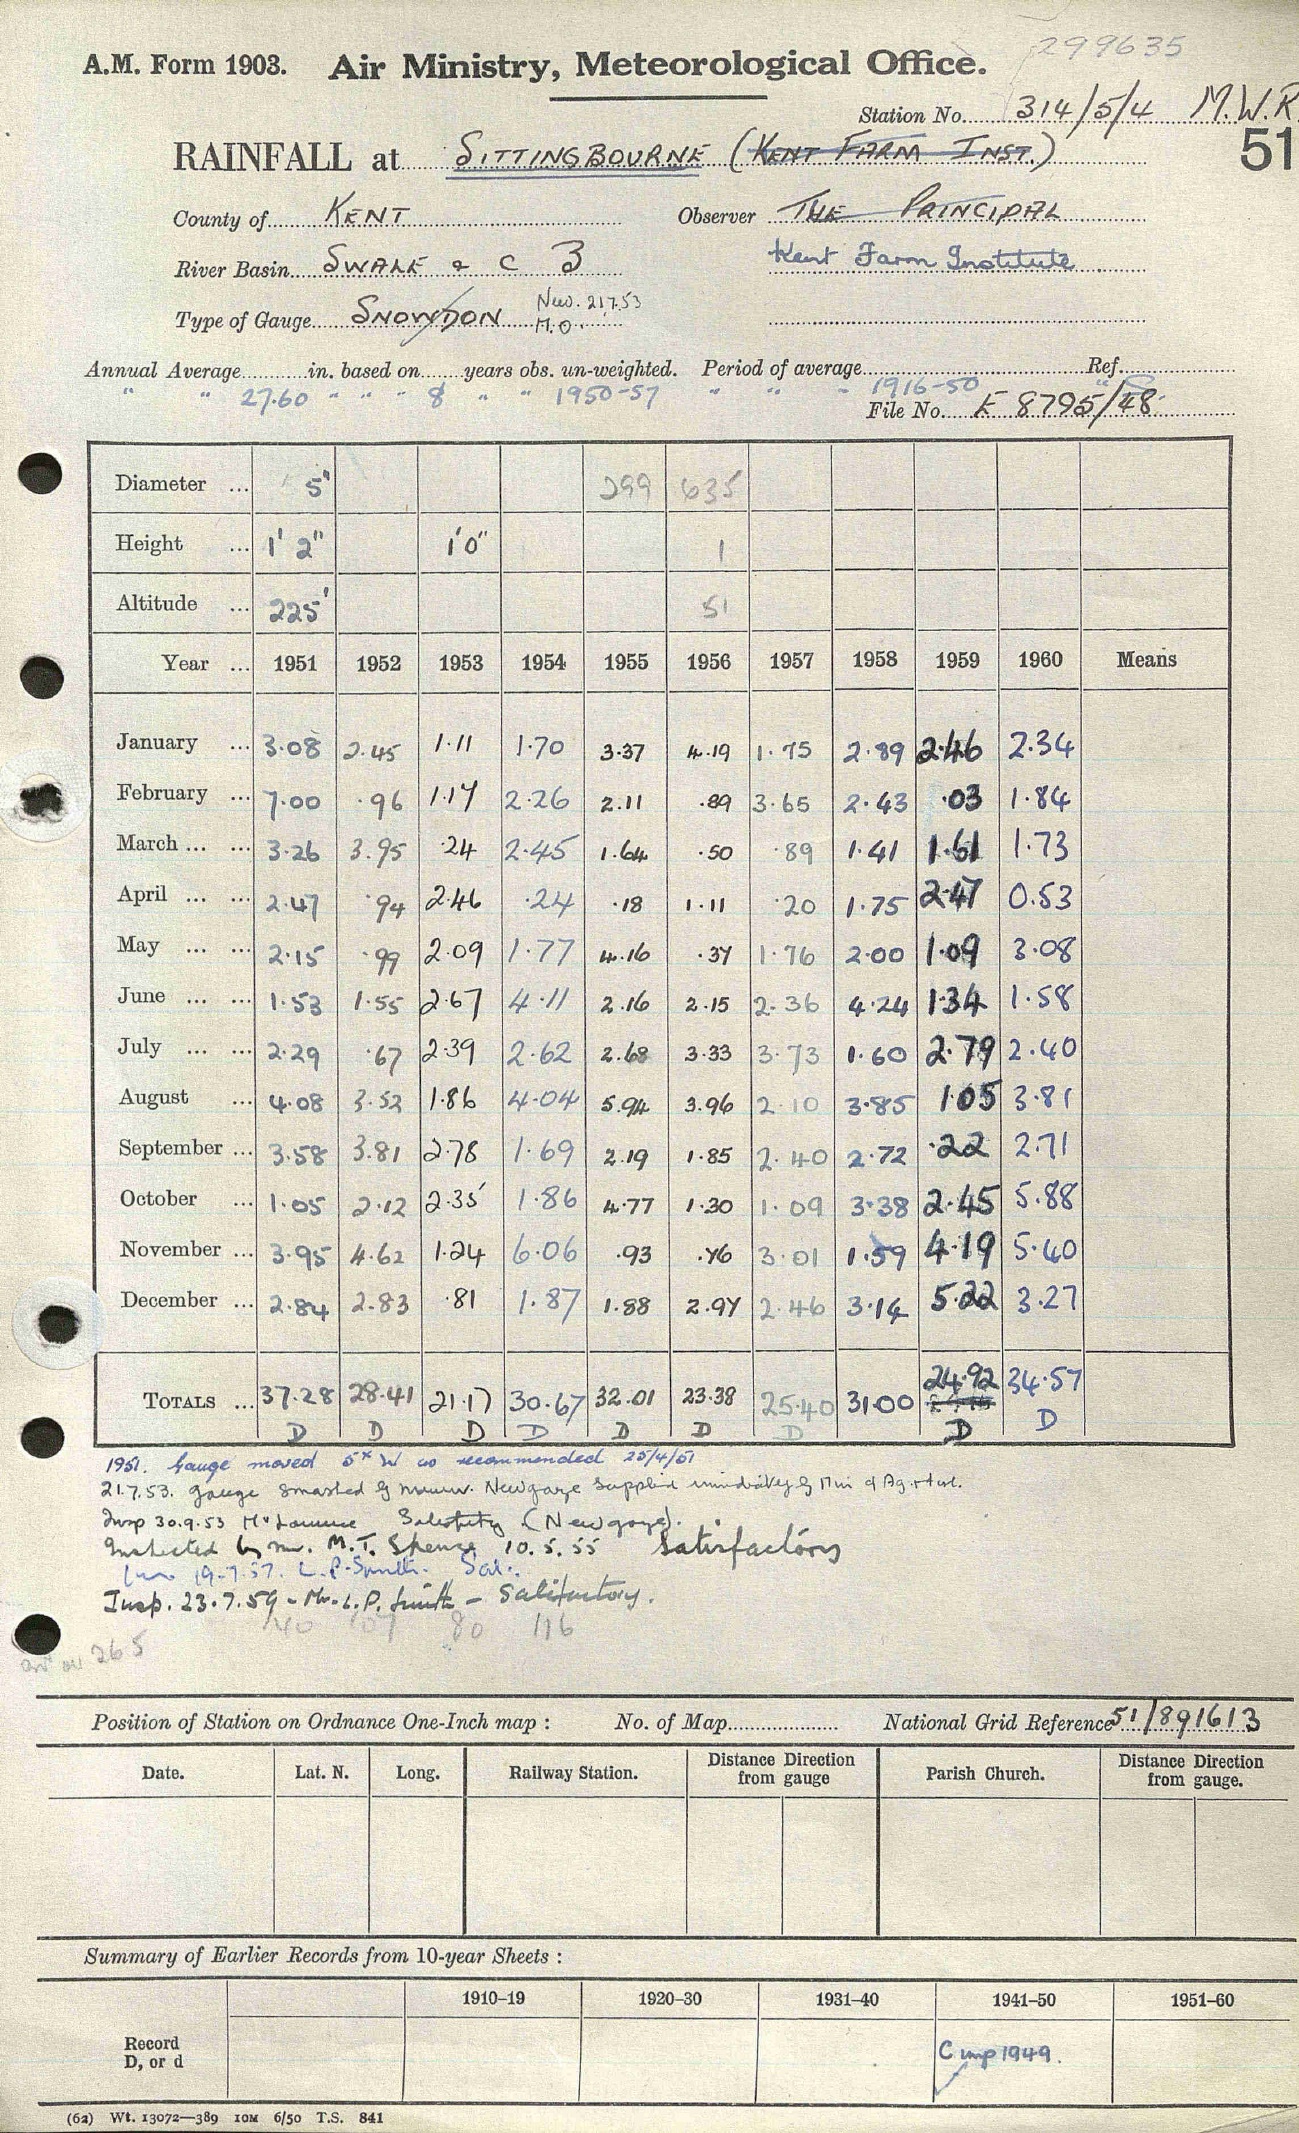 299635
A.M. Form 1903. Air Ministry, Meteorological Office.
Station No. 314/5/4 M.W.R.
51
RAINFALL at SITTINGBOURNE (KENT FARM INST.)
County of KENT Observer THE PRINCIPAL
River Basin SWALE & C 3 Kent Farm Institute
Type of Gauge SNOWDON New. 21.7.53 M.O.
Annual Average in. based on years obs. un-weighted. Period of average Ref.
" " 27.60 " " " 8 " " 1950-57 " " " 1916-50 "
File No. E 8795/48
Diameter ... 5" 299 635
Height ... 1' 2" 1'0" 1
Altitude ... 225' 51
Year ... 1951 1952 1953 1954 1955 1956 1957 1958 1959 1960 Means
January ... 3.08 2.45 1.11 1.70 3.37 4.19 1.75 2.89 2.46 2.34
February ... 7.00 .96 1.17 2.26 2.11 .89 3.65 2.43 .03 1.84
March ... ... 3.26 3.95 .24 2.45 1.64 .50 .89 1.41 1.61 1.73
April ... ... 2.47 .94 2.46 .24 .18 1.11 .20 1.75 2.47 0.53
May ... ... 2.15 .99 2.09 1.77 4.16 .37 1.76 2.00 1.09 3.08
June ... ... 1.53 1.55 2.67 4.11 2.16 2.15 2.36 4.24 1.34 1.58
July ... ... 2.29 .67 2.39 2.62 2.68 3.33 3.73 1.60 2.79 2.40
August ... 4.08 3.52 1.86 4.04 5.94 3.96 2.10 3.85 1.05 3.81
September ... 3.58 3.81 2.78 1.69 2.19 1.85 2.40 2.72 .22 2.71
October ... 1.05 2.12 2.35 1.86 4.77 1.30 1.09 3.38 2.45 5.88
November ... 3.95 4.62 1.24 6.06 .93 .76 3.01 1.59 4.19 5.40
December ... 2.84 2.83 .81 1.87 1.88 2.97 2.46 3.14 5.22 3.27
TOTALS ... 37.28 28.41 21.17 30.67 32.01 23.38 25.40 31.00 24.92 34.57
D D D D D D D D D
1951. Gauge moved 5ˣ W as recommended 25/4/51
21.7.53. Gauge smashed by mower. New gauge supplied immediately by Min of Ag. & Fish.
Insp 30.9.53 Satisfactory (New gauge).
Inspected by Mr. M.T. Spence 10.5.55 Satisfactory
Insp 19.7.57. L.P. Smith. Sat.
Insp. 23.7.59 - Mr. L.P. Smith - Satisfactory.
140 107 80 116
265
Position of Station on Ordnance One-Inch map : No. of Map National Grid Reference 51/891613
Date. Lat. N. Long. Railway Station. Distance Direction from gauge Parish Church. Distance Direction from gauge.
Summary of Earlier Records from 10-year Sheets :
1910–19 1920–30 1931–40 1941–50 1951–60
Record
D, or d
C imp 1949.
(62) Wt. 13072—389 10M 6/50 T.S. 841